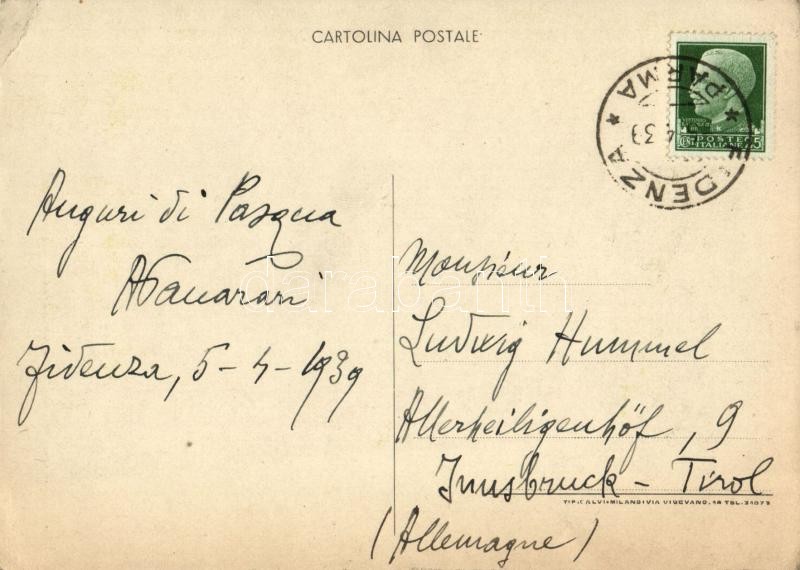 CARTOLINA POSTALE
PARMA
DENZA
39
POSTE
ITALIANE
Auguri di Pasqua
Fidenza, 5-4-1939
darabanth
Monsieur
Ludwig Hummel
Allerheiligenhöf, 9
Innsbruck - Tirol
TIP. CALVI • MILANO • VIA VIGEVANO,
(Allemagne)